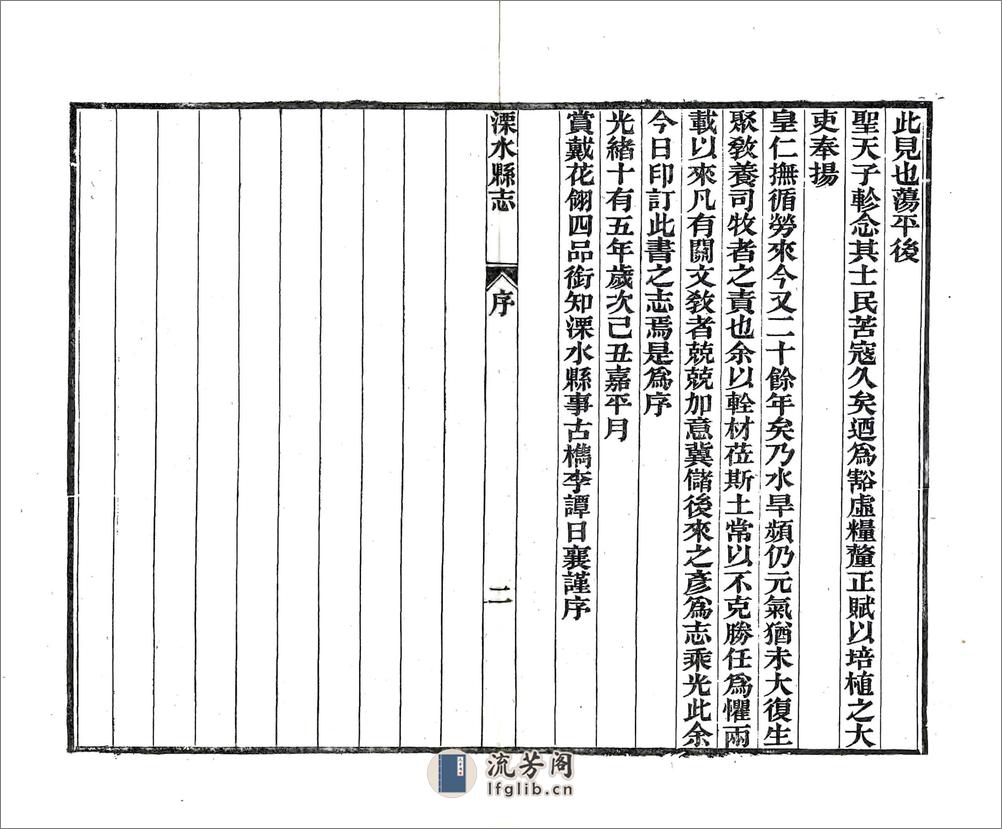 此見也蕩平後
聖天子軫念其士民苦寇久矣迺爲豁虛糧釐正賦以培植之大
吏奉揚
皇仁撫循勞來今又二十餘年矣乃水旱頻仍元氣猶未大復生
聚敎養司牧者之責也余以輇材莅斯土常以不克勝任爲懼兩
載以來凡有關文敎者兢兢加意冀儲後來之彥爲志乘光此余
今日印訂此書之志焉是爲序
光緒十有五年歲次己丑嘉平月
賞戴花翎四品銜知溧水縣事古檇李譚日襄謹序
溧水縣志
序
二
流芳阁
lfglib.cn